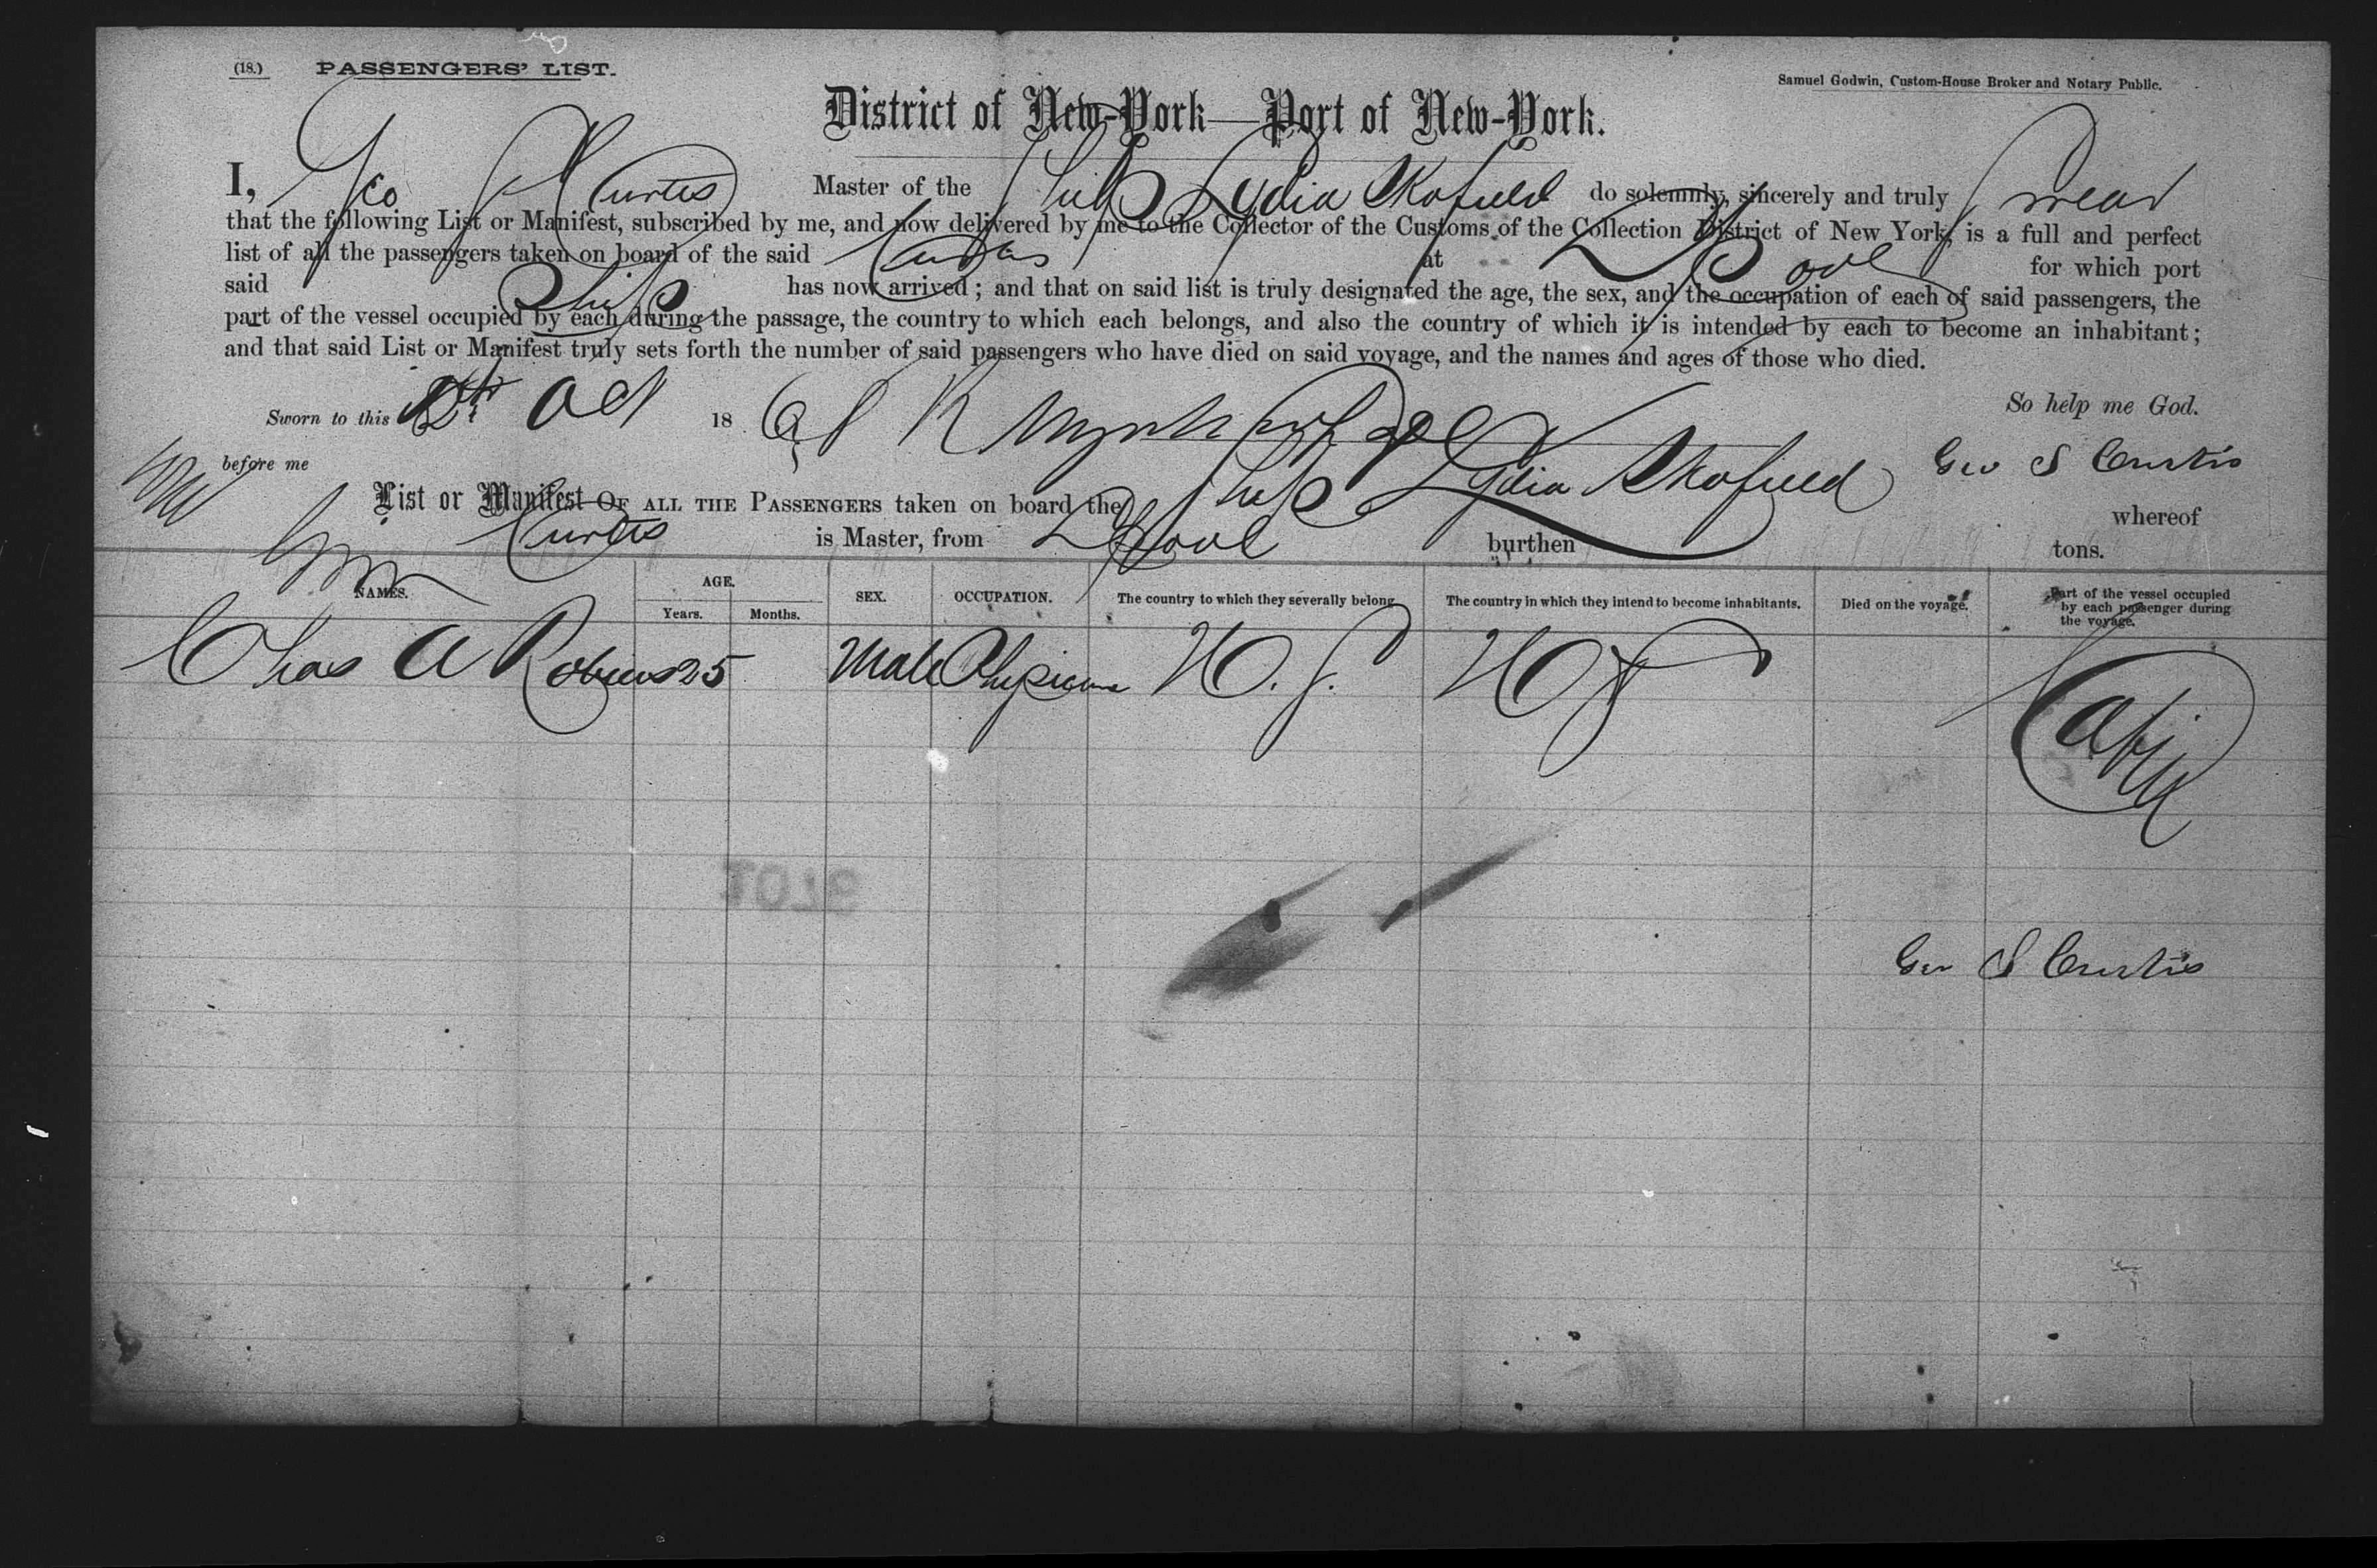 (18.) PASSENGERS' LIST.
Samuel Godwin, Custom-House Broker and Notary Public.
District of New-York—Port of New-York.
I, Geo S Curtis Master of the Ship Lydia Skofield do solemnly, sincerely and truly swear
that the following List or Manifest, subscribed by me, and now delivered by me to the Collector of the Customs of the Collection District of New York, is a full and perfect
list of all the passengers taken on board of the said at L'pool for which port
said Ship has now arrived; and that on said list is truly designated the age, the sex, and the occupation of each of said passengers, the
part of the vessel occupied by each during the passage, the country to which each belongs, and also the country of which it is intended by each to become an inhabitant;
and that said List or Manifest truly sets forth the number of said passengers who have died on said voyage, and the names and ages of those who died.
So help me God.
Sworn to this Oct 18
before me
Geo S Curtis
List or Manifest OF ALL THE PASSENGERS taken on board the Ship Lydia Skofield whereof
Curtis is Master, from L'pool burthen tons.
NAMES. AGE. Years. Months. SEX. OCCUPATION. The country to which they severally belong. The country in which they intend to become inhabitants. Died on the voyage. Part of the vessel occupied by each passenger during the voyage.
Chas A Robins 25 Male Physician U.S. US Cabin
Geo S Curtis